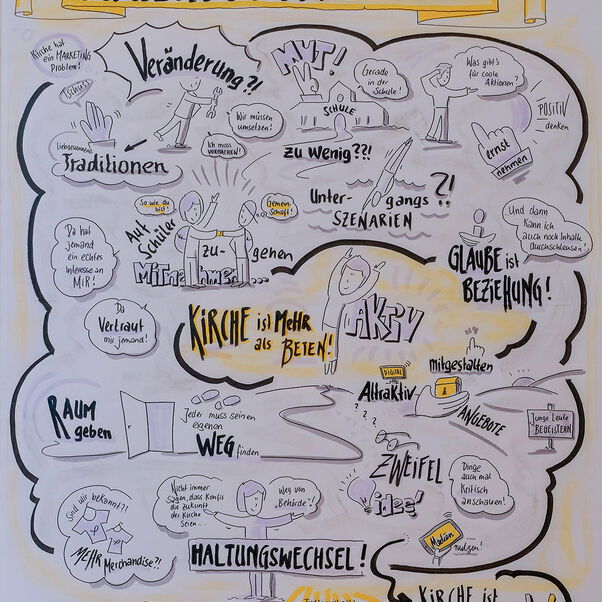 Kirche hat
ein MARKETING
Problem!
Veränderung?!
MUT!
Gerade
in der
Schule!
SCHULE
zu wenig?!?!
Was gibt's
für coole
Aktionen?
POSITIV
denken
ernst
nehmen
Tschüss
Liebgewonnene
Traditionen
Wir müssen
umsetzen!
Ich muss
VORMACHEN!
So wie du
bist!
Gemein-
schaft!
Auf
Schüler
zu-
gehen
Mitnehmen...
Unter- gangs ?!
SZENARIEN
Und dann
kann ich
auch noch Inhalte
durchschleusen!
GLAUBE ist
BEZIEHUNG!
Da hat
jemand
ein echtes
Interesse an
MIR!
Da
Vertraut
mir jemand!
KIRCHE ist MEHR
als BETEN!
AKTIV
DIGITAL
mitgestalten
Attraktiv
ANGEBOTE
Junge Leute
BEGEISTERN
RAUM
geben
Jeder muss seinen
eigenen
WEG finden
? ? ?
ZWEIFEL
Dinge
auch mal
Kritisch
anschauen!
idee!
Sind wir bekannt?!
MEHR Merchandise?!
Nicht immer
sagen, dass Konfis
die Zukunft
der Kirche
seien...
Weg von
„Behörde"!
HALTUNGSWECHSEL!
Medien
nutzen!
KIRCHE ist